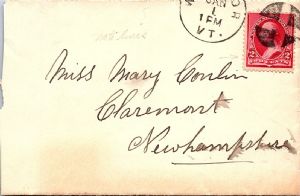 JAN
1
1 PM
VT.
2 2
Miss Mary Conlin
Claremont
Newhampshire